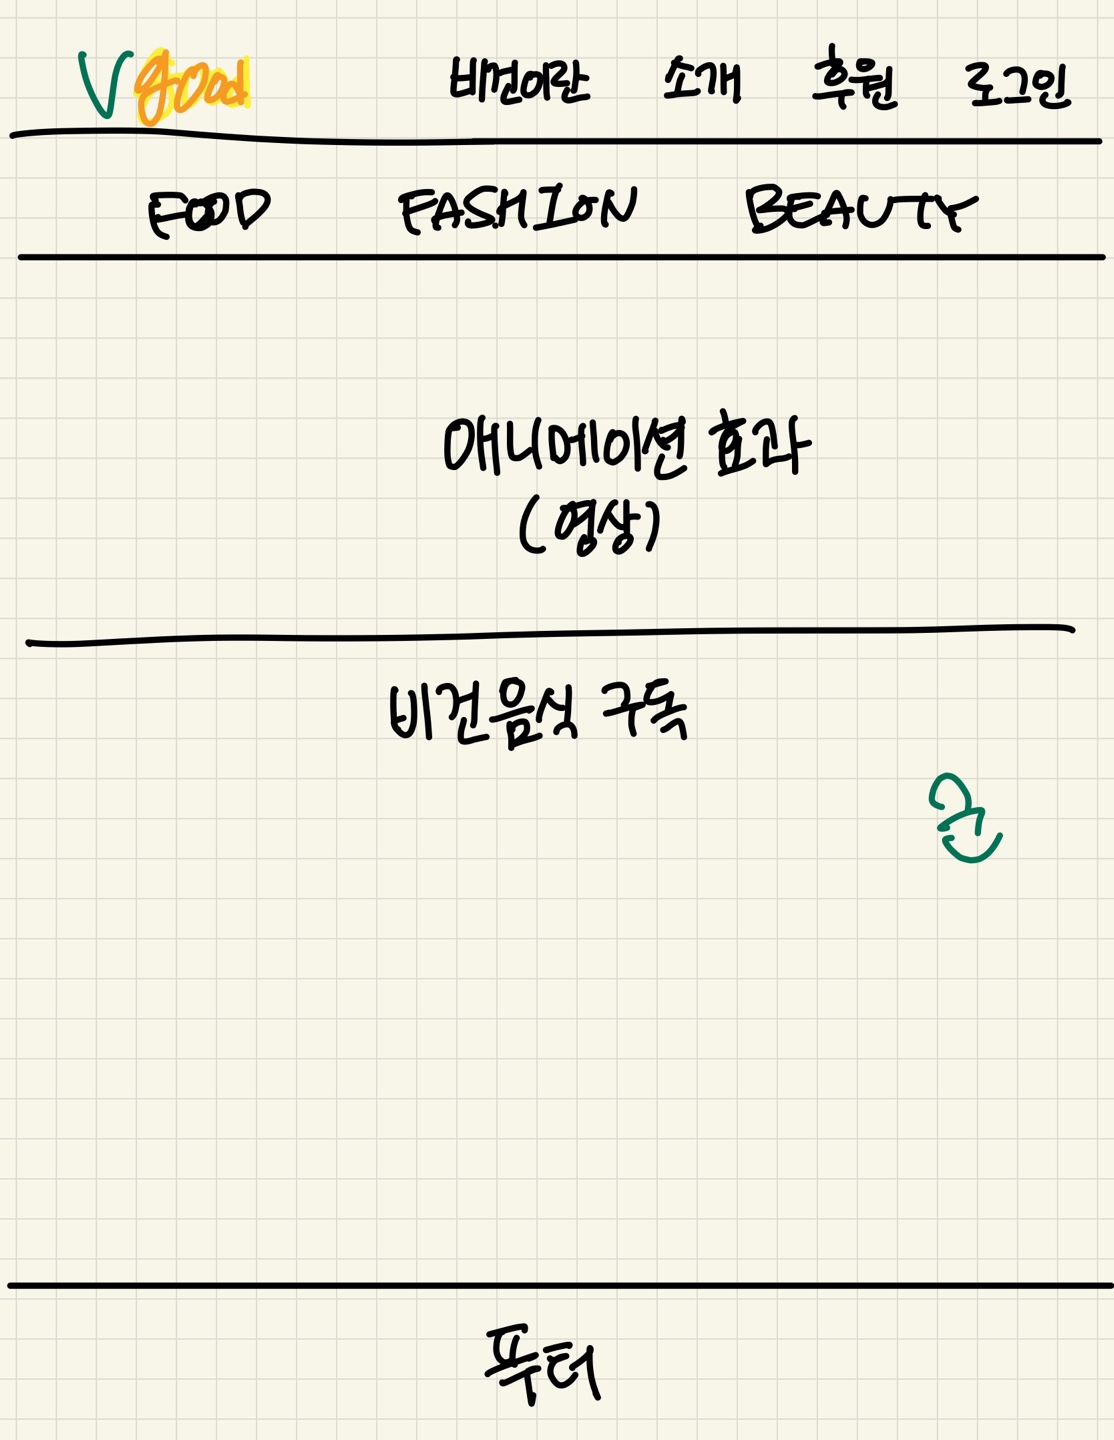 Vgood 비건이란 소개 후원 로그인
FOOD FASHION BEAUTY
애니메이션 효과
(영상)
비건음식 구독
푸터